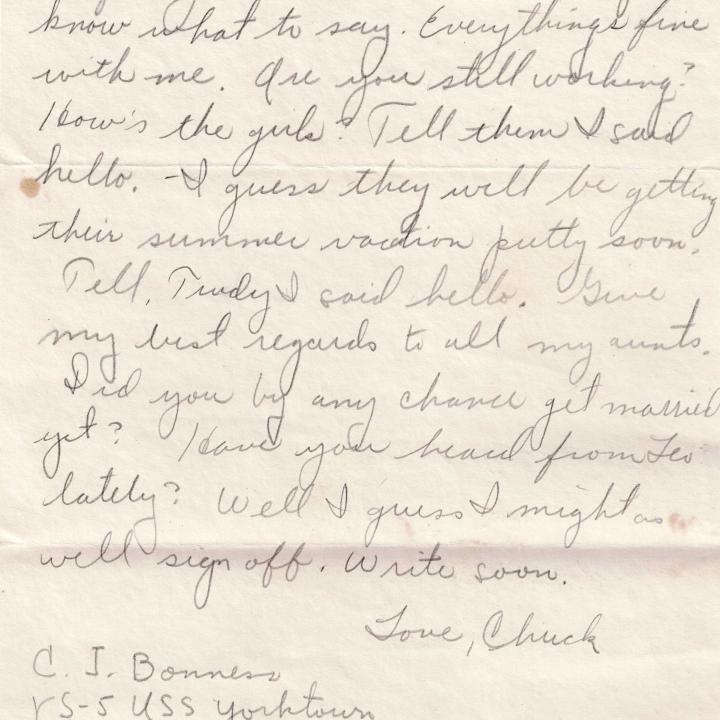 know what to say. Everything's fine
with me. Are you still working?
How's the girls? Tell them I said
hello. I guess they will be getting
their summer vacation pretty soon.
Tell, Trudy I said hello. Give
my best regards to all my aunts.
Did you by any chance get married
yet? Have you heard from Leo
lately? Well I guess I might as
well sign off. Write soon.
Love, Chuck
C. J. Bonness
VS-5 USS Yorktown